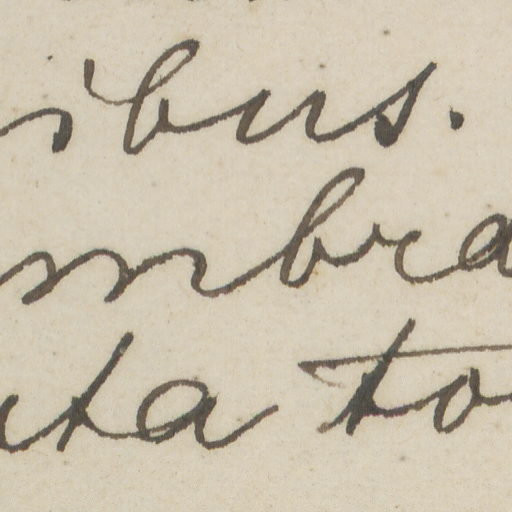 ibus.
mbra
uta to